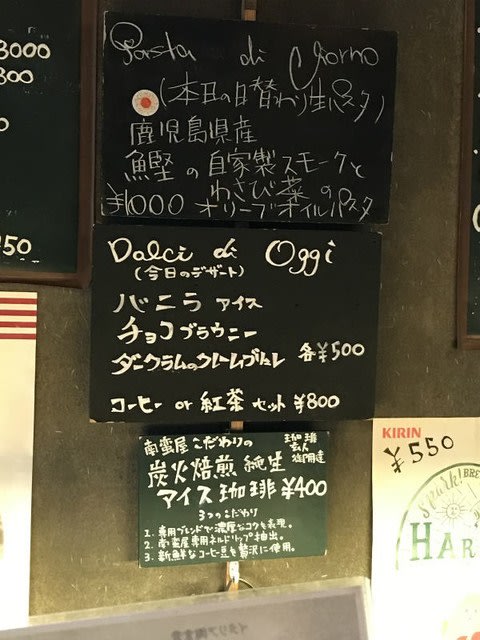 3000
Pasta di Giorno
(本日の日替わり生パスタ)
鹿児島県産
鰹の自家製スモークと
わさび菜の
¥1000 オリーブオイルパスタ
Dolci di Oggi
(今日のデザート)
バニラアイス
チョコブラウニー
ダークラムのクレームブリュレ 各¥500
コーヒー or 紅茶 セット ¥800
南蛮屋こだわりの 珈琲
炭火焙煎 純生
アイス珈琲 ¥400
3つのこだわり
1. 専用ブレンドで濃厚なコクを表現。
2. 南蛮屋専用ネルドリップ抽出。
3. 新鮮なコーヒー豆を贅沢に使用。
KIRIN
¥550
HAR